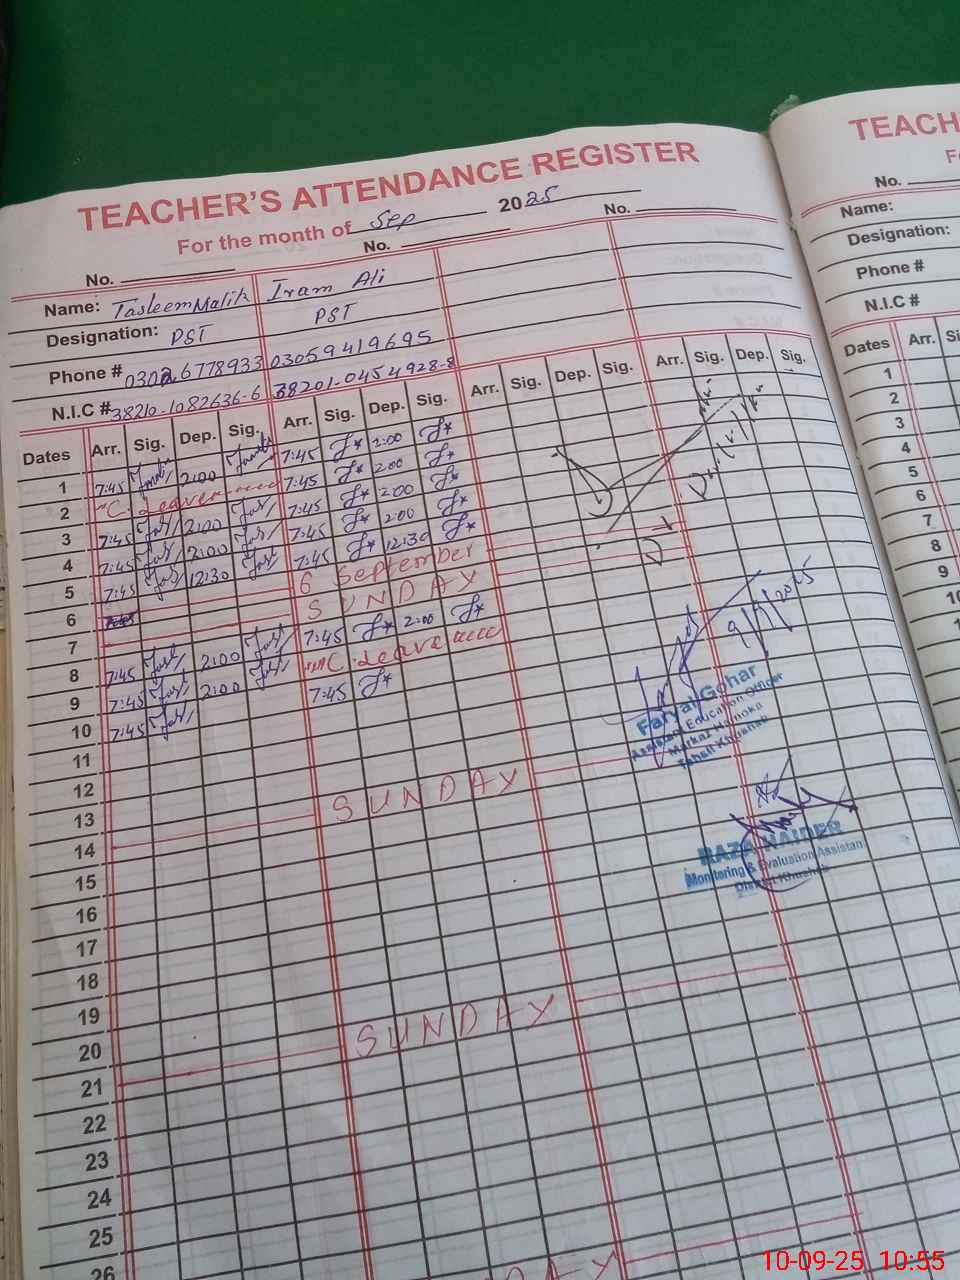 TEACHER'S ATTENDANCE REGISTER
For the month of Sep 2025
No. No. No.
Name: Tasleem Malik Iram Ali
Designation: PST PST
Phone # 03026778933 03059419695
N.I.C # 38210-1082636-6 38201-0454928-8
Dates Arr. Sig. Dep. Sig. Arr. Sig. Dep. Sig. Arr. Sig. Dep. Sig. Arr. Sig. Dep. Sig.
1 7:45 2:00 7:45 2:00
2 C. Leave 7:45 2:00
3 7:45 2:00 7:45 2:00
4 7:45 2:00 7:45 2:00
5 7:45 12:30 7:45 12:30
6 6 September
7 SUNDAY
8 7:45 2:00 7:45 2:00
9 7:45 2:00 C. Leave
10 7:45 7:45
11
12
13
14 SUNDAY
15
16
17
18
19
20
21 SUNDAY
22
23
24
25
26
9/9/2025
Faryal Gohar
Assistant Education Officer
Markaz Hadoka
Tehsil Khushab
RAZA HAIDER
Monitoring & Evaluation Assistan
District Khushab
TEACH
No.
Name:
Designation:
Phone #
N.I.C #
Dates Arr.
1
2
3
4
5
6
7
8
9
10
11
12
13
10-09-25 10:55